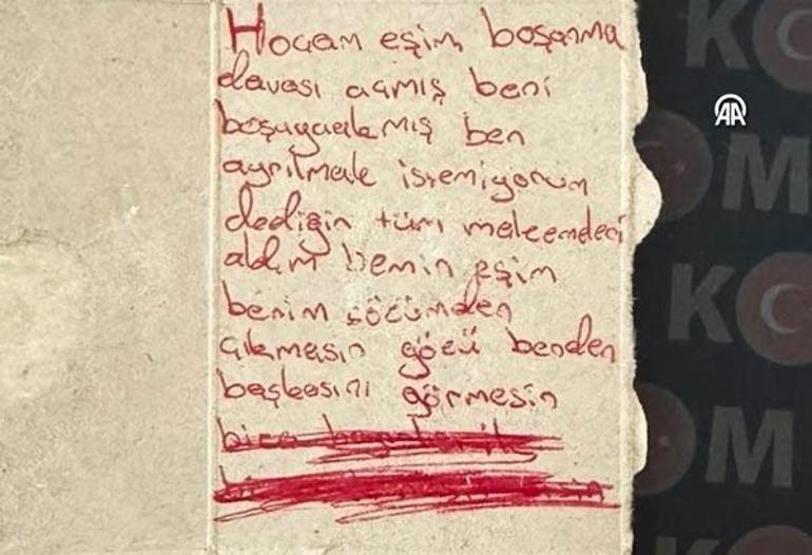 Hocam eşim boşanma
davası açmış beni
boşuyacakmış ben
ayrılmak istemiyorum
dediğin tüm malzemleri
aldım benim eşim
benim sözümden
çıkmasın gözü benden
başkasını görmesin
AA
KOM
KOM